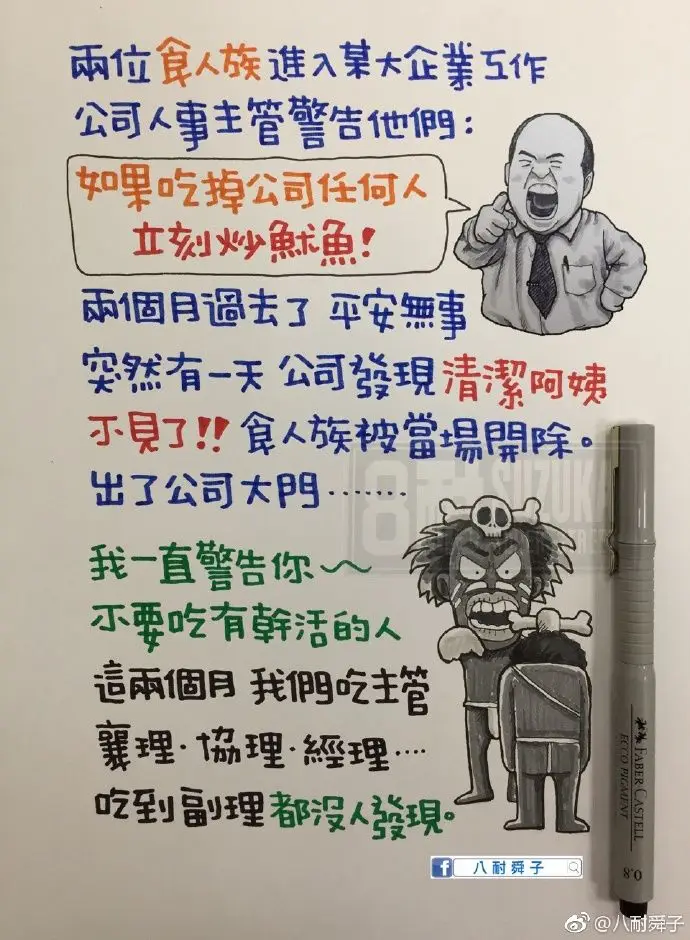 兩位食人族進入某大企業工作
公司人事主管警告他們:
如果吃掉公司任何人
立刻炒魷魚!
兩個月過去了 平安無事
突然有一天 公司發現清潔阿姨
不見了!! 食人族被當場開除。
出了公司大門········
我一直警告你~~
不要吃有幹活的人
這兩個月 我們吃主管
襄理·協理·經理····
吃到副理都沒人發現。
八耐舜子
FABER-CASTELL
ECCO PIGMENT
0.8
@八耐舜子